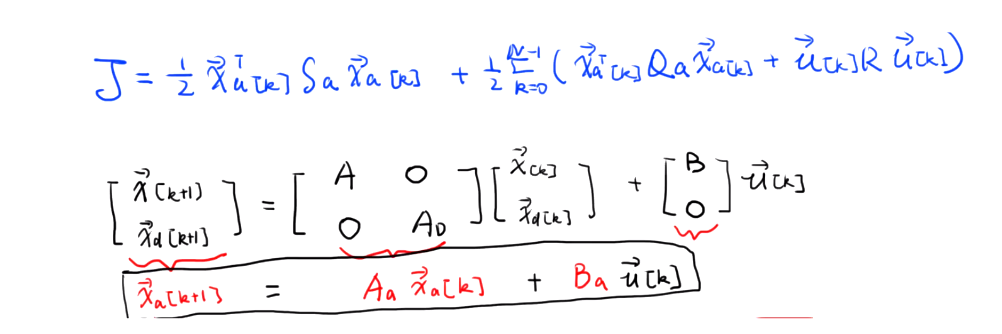 J = ½ x⃗ₐᵀ[k] Sₐ x⃗ₐ[k] + ½ Σ_{k=0}^{N-1} ( x⃗ₐᵀ[k] Qₐ x⃗ₐ[k] + u⃗[k] R u⃗[k] )
[ x⃗[k+1] ; x⃗d[k+1] ] = [ A 0 ; 0 A_D ] [ x⃗[k] ; x⃗d[k] ] + [ B ; 0 ] u⃗[k]
x⃗a[k+1] = Aa x⃗a[k] + Ba u⃗[k]